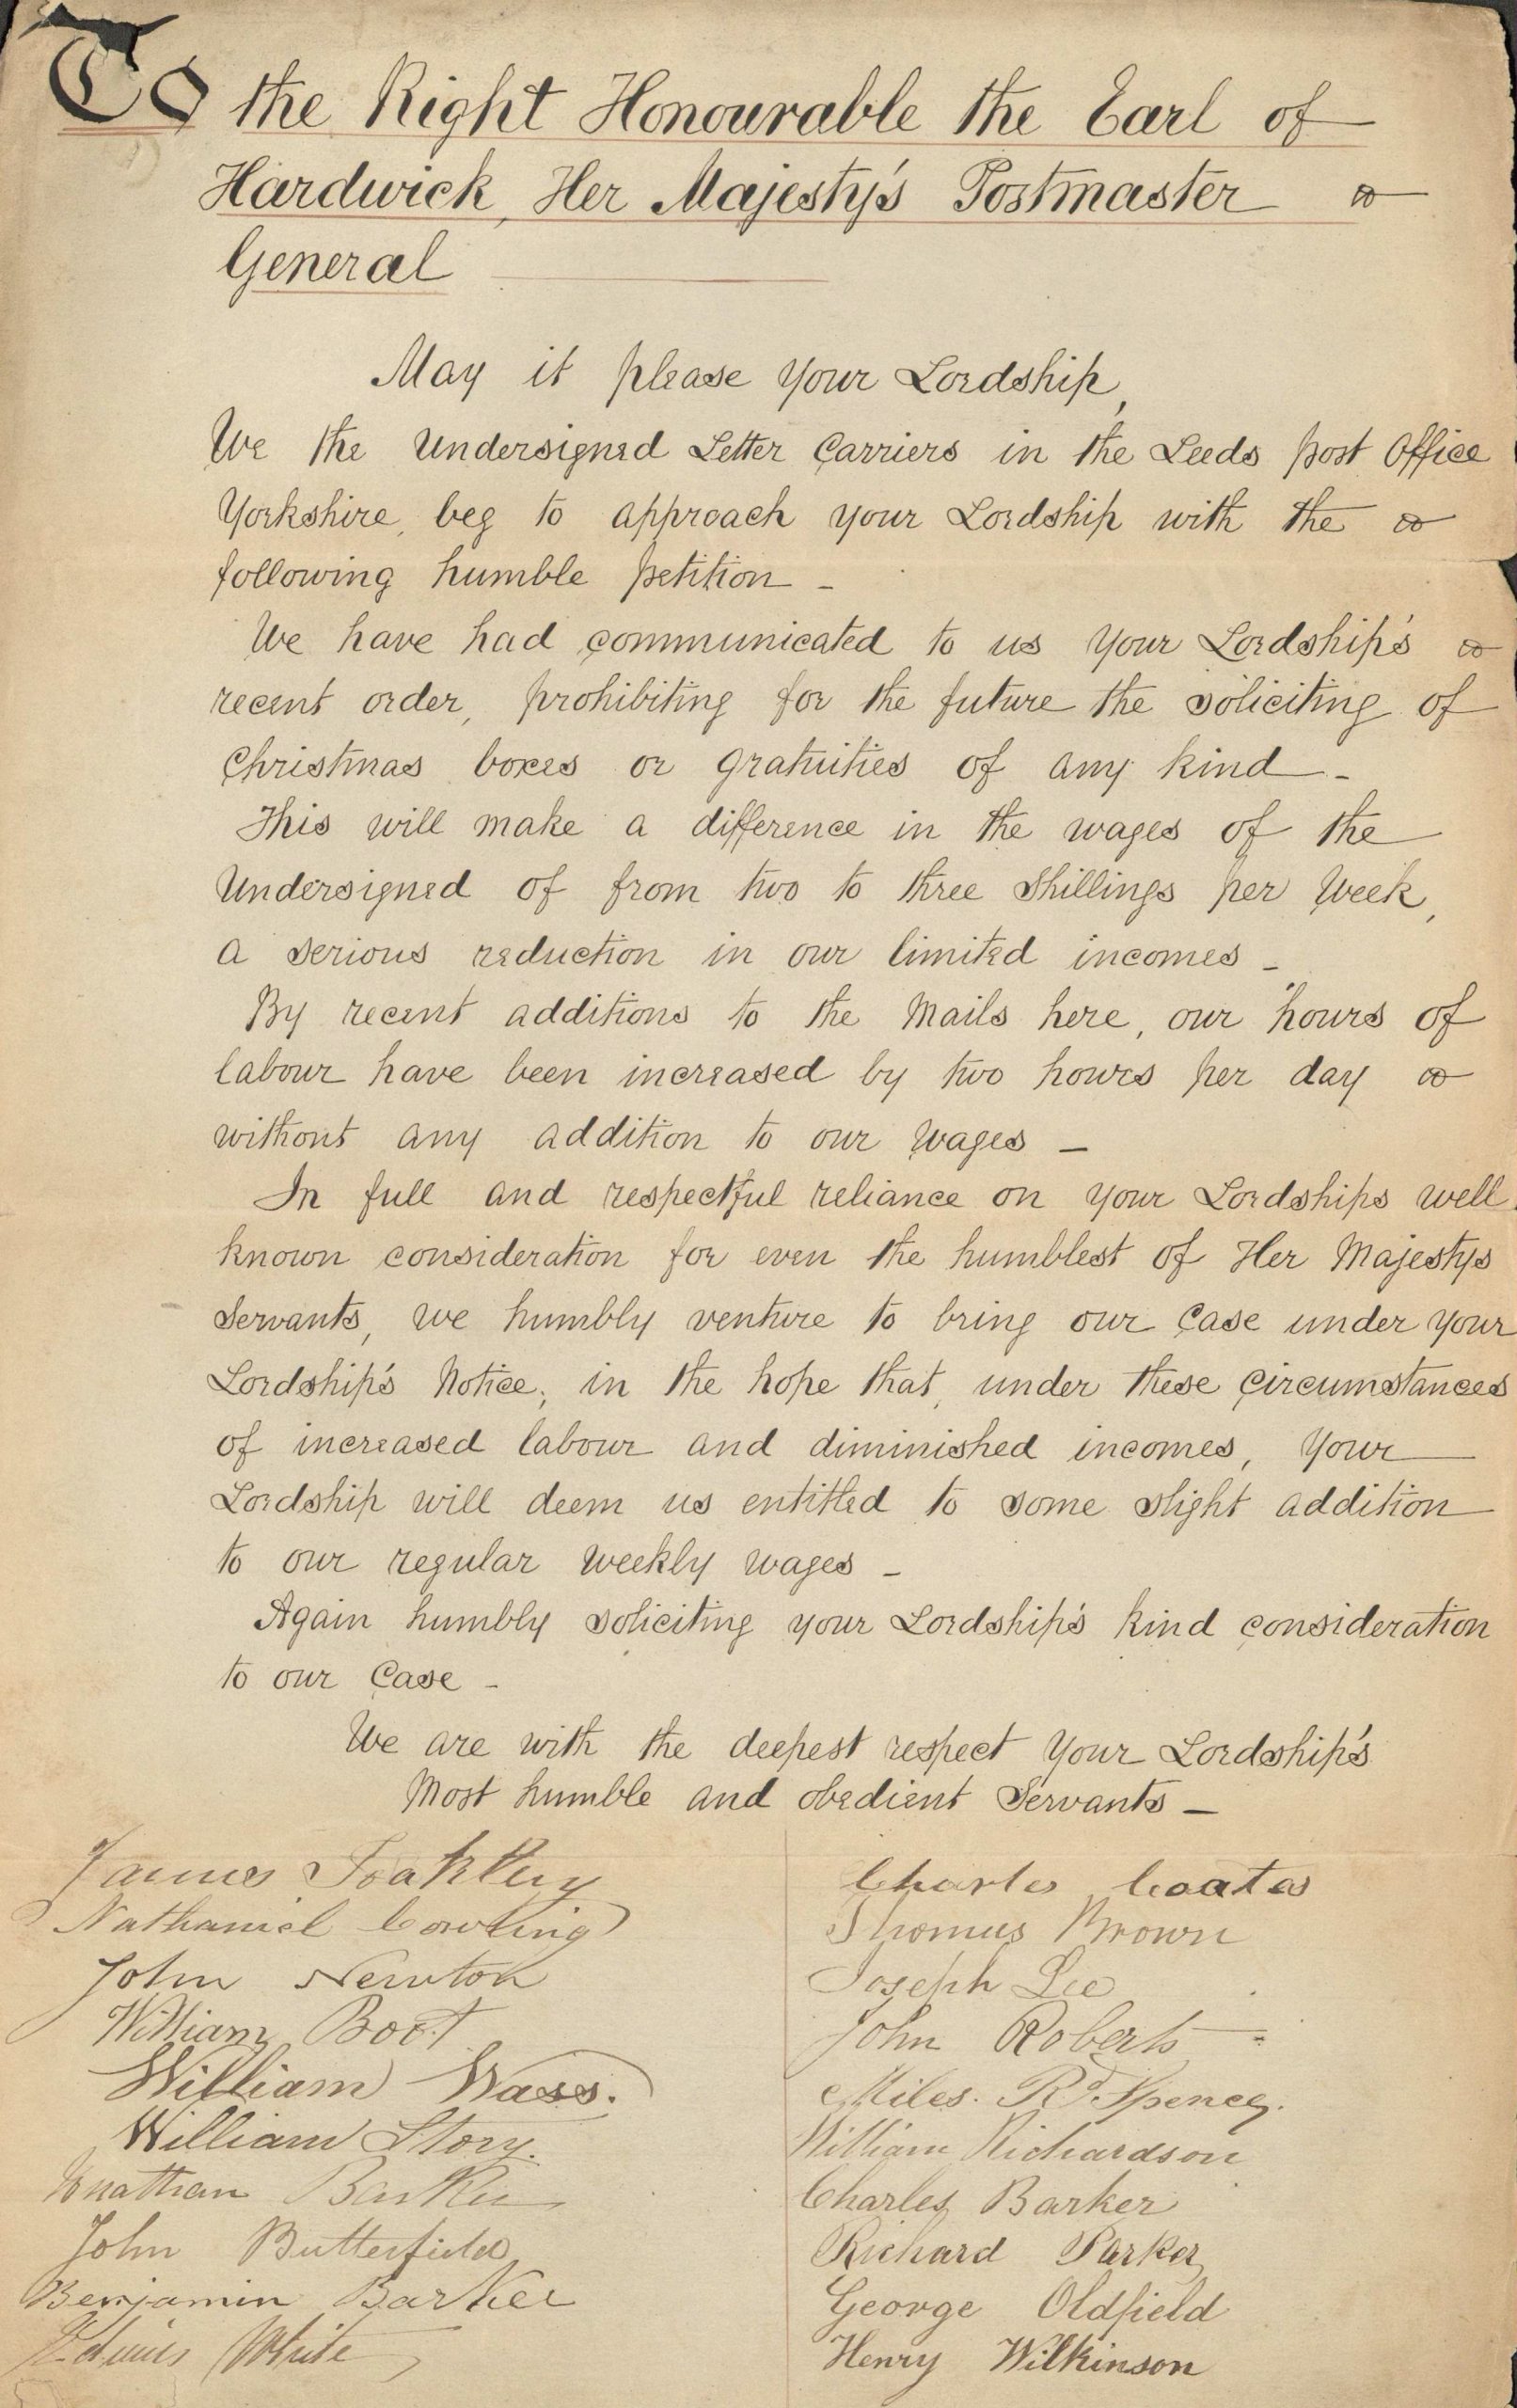 To the Right Honourable the Earl of
Hardwick, Her Majesty's Postmaster
General
May it please your Lordship,
We the Undersigned Letter Carriers in the Leeds post Office
Yorkshire, beg to approach your Lordship with the
following humble petition -
We have had communicated to us your Lordship's
recent order, prohibiting for the future the soliciting of
Christmas boxes or gratuities of any kind -
This will make a difference in the wages of the
Undersigned of from two to three Shillings per Week,
a serious reduction in our limited incomes -
By recent additions to the Mails here, our hours of
labour have been increased by two hours per day
without any addition to our wages -
In full and respectful reliance on your Lordships well
known consideration for even the humblest of Her Majestys
Servants, we humbly venture to bring our Case under your
Lordship's Notice, in the hope that, under these Circumstances
of increased labour and diminished incomes, your
Lordship will deem us entitled to some slight addition
to our regular weekly wages -
Again humbly soliciting your Lordship's kind consideration
to our Case -
We are with the deepest respect your Lordship's
Most humble and obedient Servants -
James
Nathaniel Cowling
John Newton
William Boot
William Wass.
William Story.
Jonathan Barker
John Butterfield
Benjamin Barker
White
Charles Coates
Thomas Brown
Joseph Lee
John Roberts
Miles. Rd Spence.
William Richardson
Charles Barker
Richard Parker
George Oldfield
Henry Wilkinson